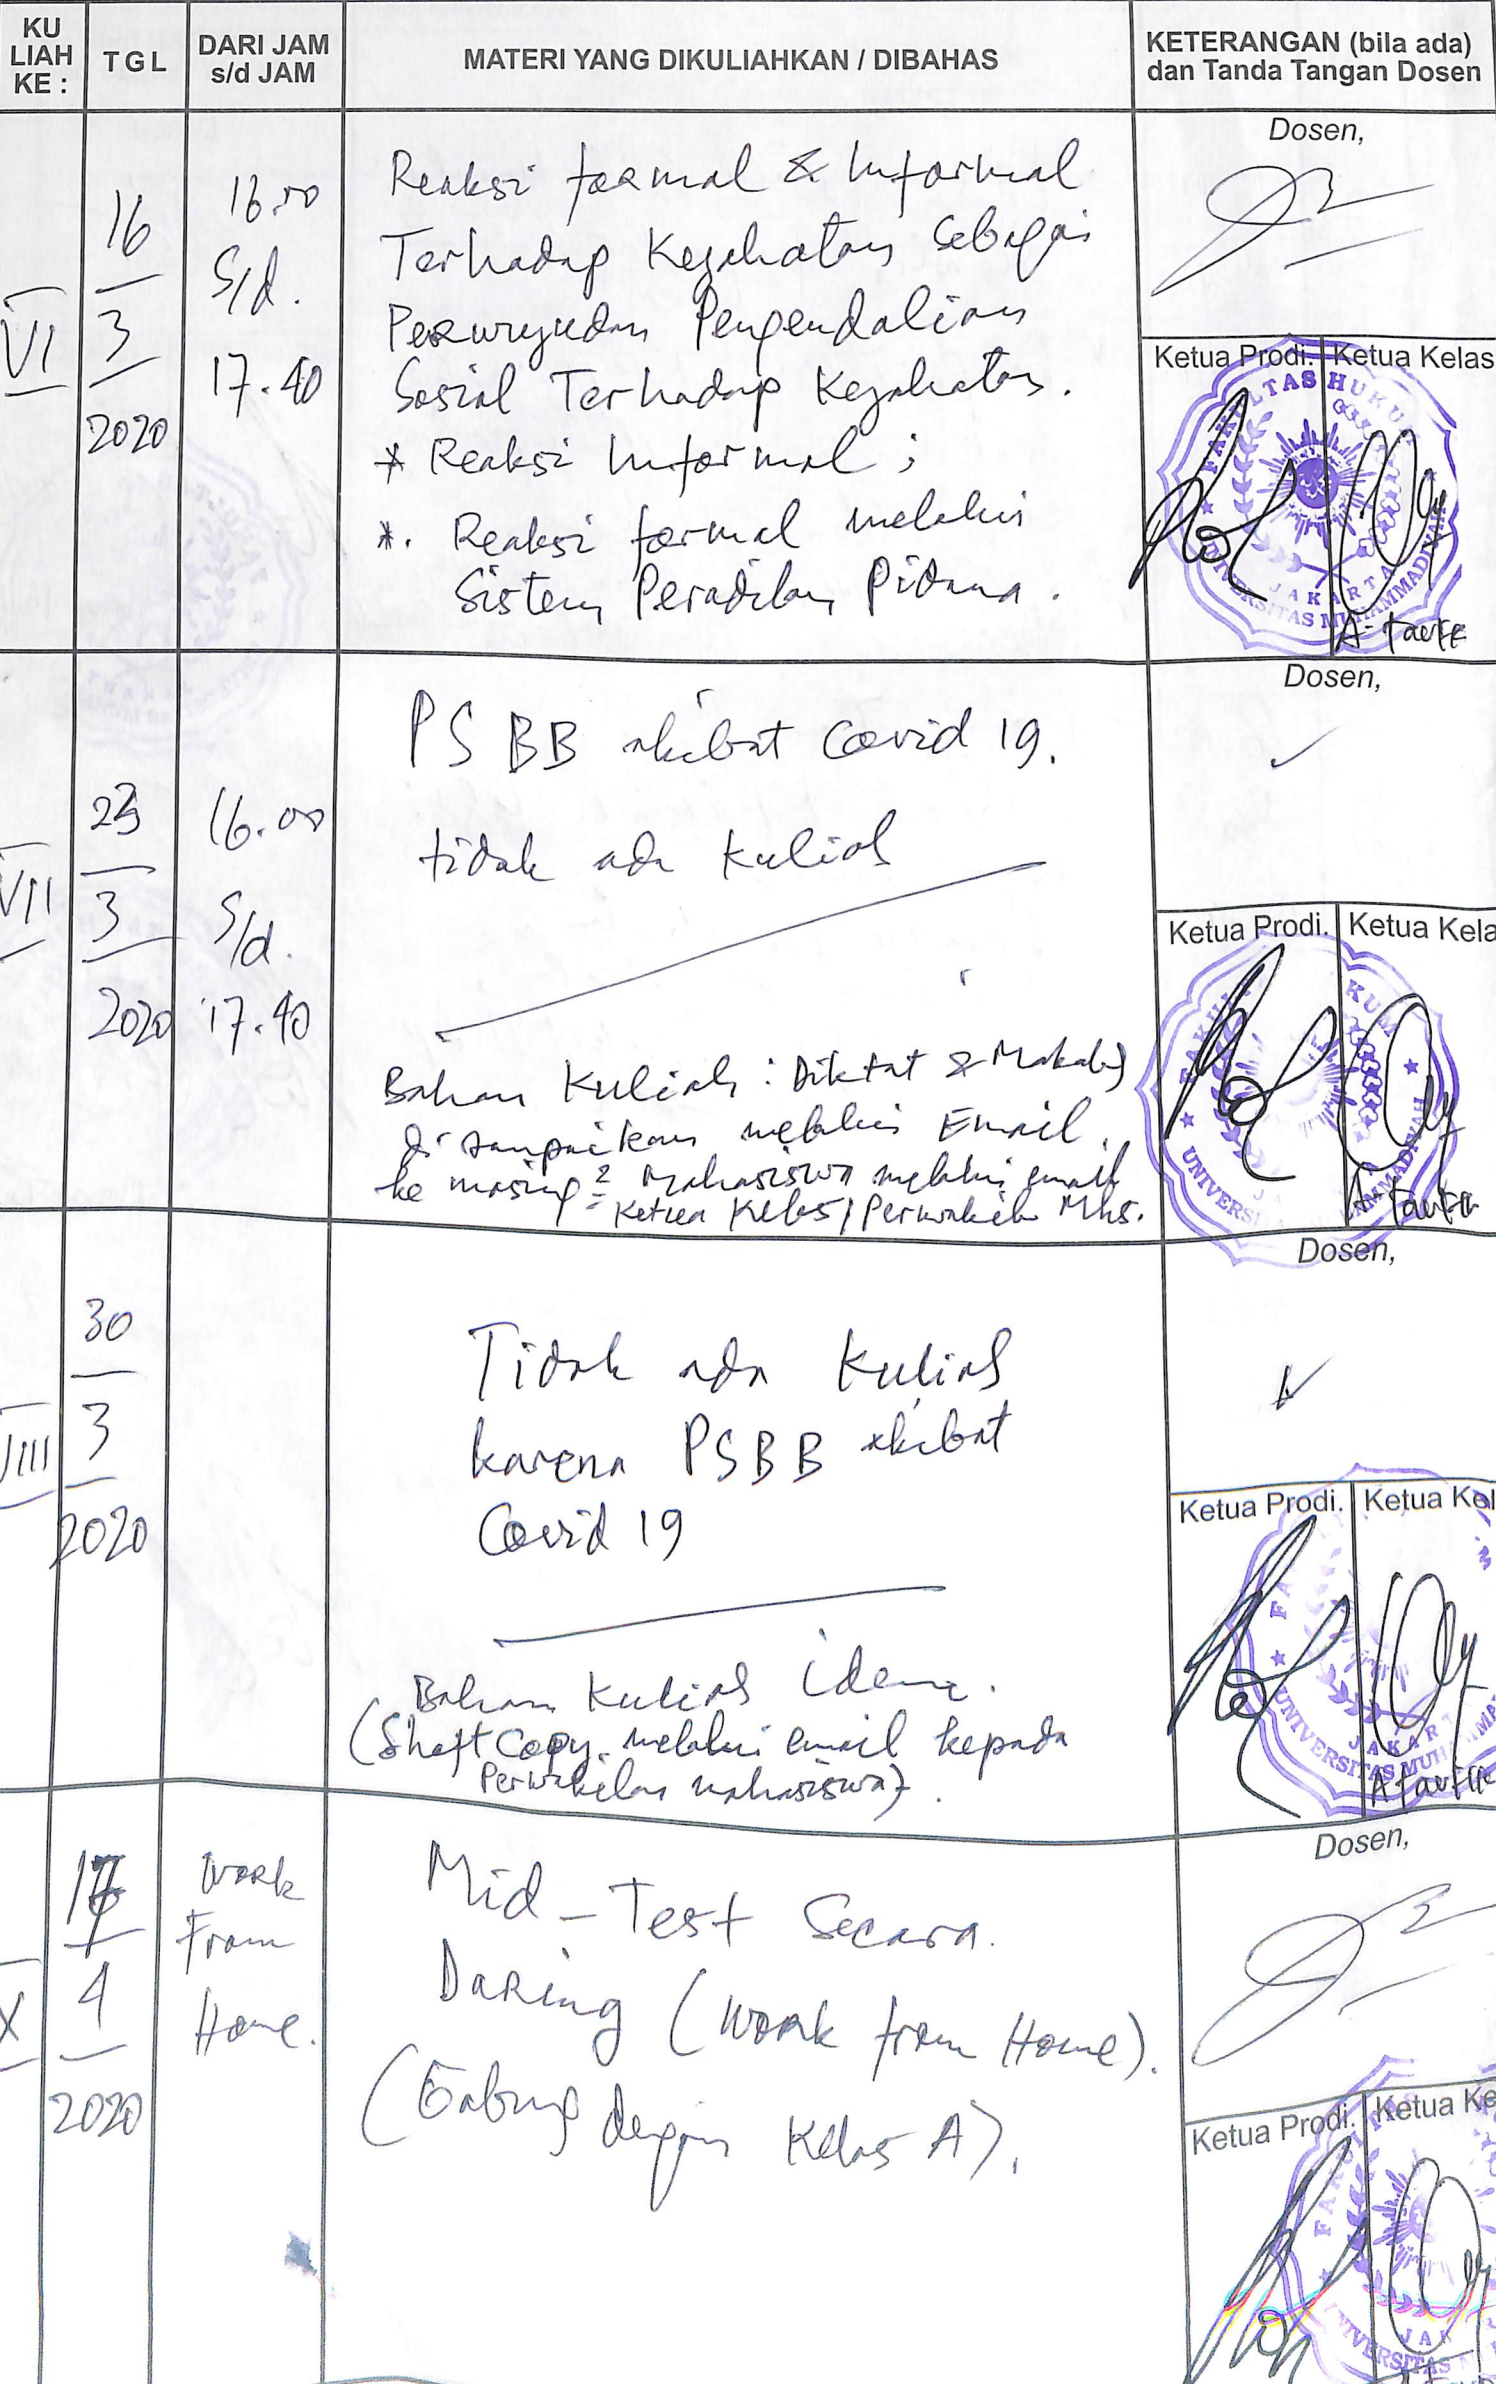 KU
LIAH
KE :
TGL
DARI JAM
s/d JAM
MATERI YANG DIKULIAHKAN / DIBAHAS
KETERANGAN (bila ada)
dan Tanda Tangan Dosen
VI
16
3
2020
16.00
S/d.
17.40
Reaksi formal & Informal
Terhadap Kejahatan Sebagai
Perwujudan Pengendalian
Sosial Terhadap Kejahatan.
* Reaksi Informal ;
*. Reaksi formal melalui
Sistem Peradilan Pidana.
Dosen,
Ketua Prodi.
Ketua Kelas
FAKULTAS HUKUM
UNIVERSITAS MUHAMMADIYAH
JAKARTA
A. Taufik
VII
23
3
2020
16.00
S/d.
17.40
PSBB akibat Covid 19.
tidak ada Kuliah
Bahan Kuliah : Diktat & Makalah
disampaikan melalui Email
ke masing2 Mahasiswa melalui email
Ketua Kelas / Perwakilan Mhs.
Dosen,
Ketua Prodi.
Ketua Kela
UNIVERSI
A. Taufik
VIII
30
3
2020
Tidak ada Kuliah
karena PSBB akibat
Covid 19
Bahan Kuliah idem.
(Shoft Copy. melalui email kepada
Perwakilan mahasiswa).
Dosen,
Ketua Prodi.
Ketua Kel
UNIVERSITAS MUHAMMA
JAKART
A Taufik
X
4
2020
Work
From
Home.
Mid-Test Secara
Daring (Work from Home).
(Gabung dengan Kelas A).
Dosen,
Ketua Prodi.
Ketua Ke